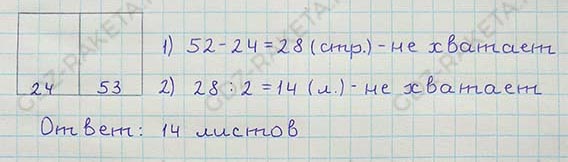 1) 52-24=28 (стр.) - не хватает
24 53 2) 28:2=14 (л.) - не хватает
Ответ: 14 листов
GDZ-RAKETA